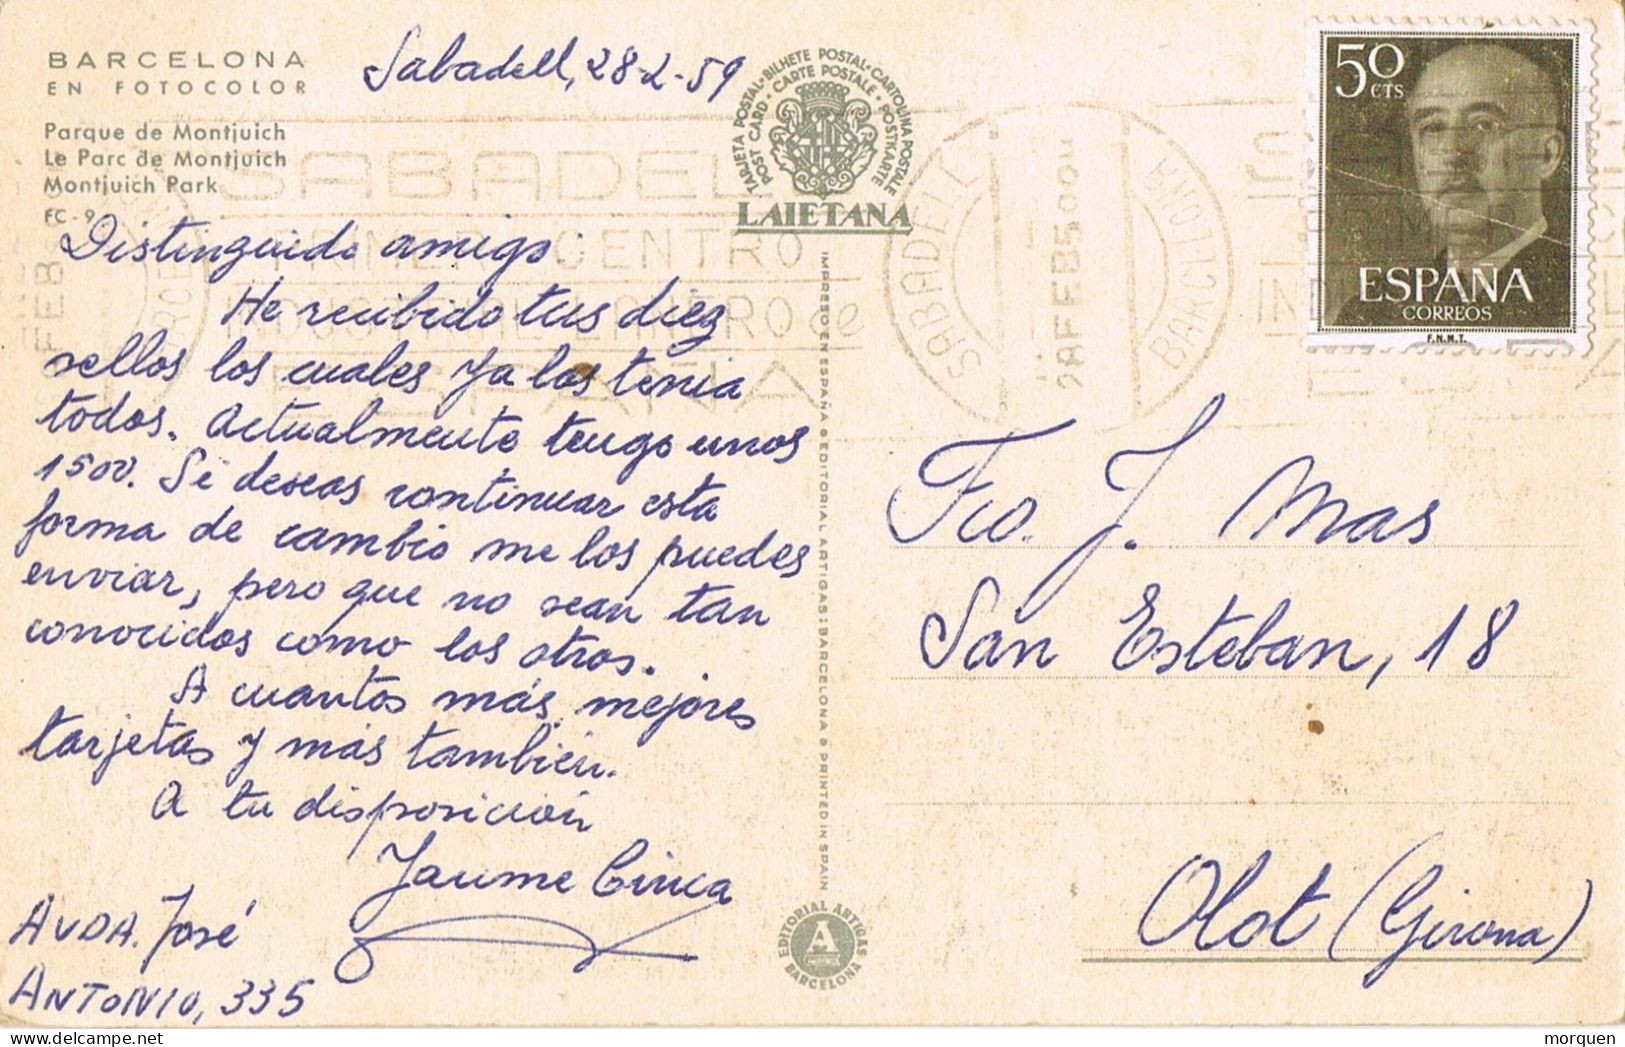 BARCELONA
EN FOTOCOLOR
Parque de Montjuich
Le Parc de Montjuich
Montjuich Park
FC - 9
Sabadell, 28-2-59
TARJETA POSTAL · BILHETE POSTAL · CARTOLINA POSTALE
POST CARD · CARTE POSTALE · POSTKARTE
LAIETANA
Distinguido amigo:
He recibido tus diez
sellos los cuales ya los tenia
todos. Actualmente tengo unos
1500. Si deseas continuar esta
forma de cambio me los puedes
enviar, pero que no sean tan
conocidos como los otros.
A cuantos más, mejores
tarjetas y más también.
A tu disposición
Jaume Cinca
AVDA. José
ANTONIO, 335
IMPRESO EN ESPAÑA EDITORIAL ARTIGAS: BARCELONA PRINTED IN SPAIN
EDITORIAL ARTIGAS
A
BARCELONA
SABADELL
PRIMER CENTRO
LANERO de
ESPAÑA
SABADELL
28 FEB 59
BARCELONA
50
CTS
ESPAÑA
CORREOS
F.N.M.T.
Fco. J. Mas
San Esteban, 18
Olot (Girona)
morquen